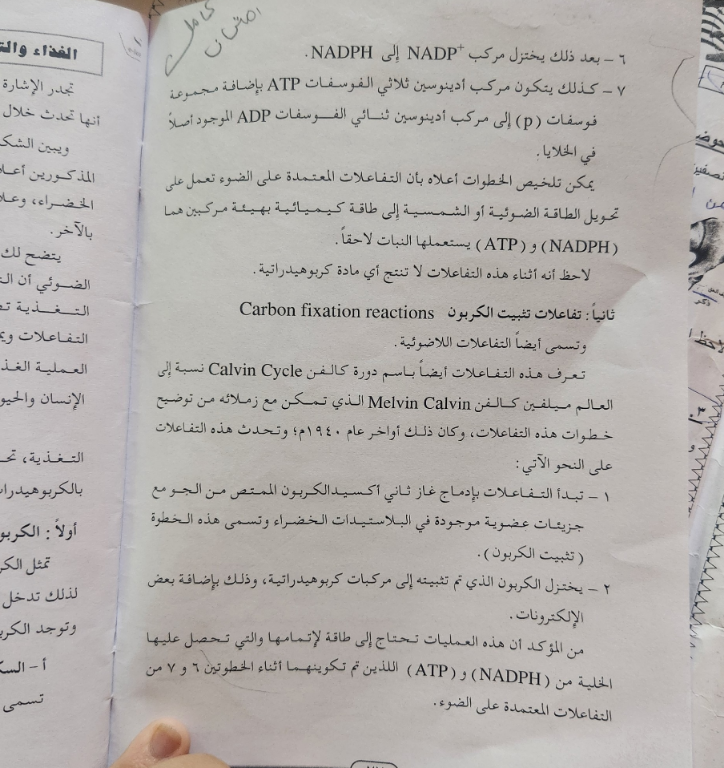 كامل
امتحان
٦ – بعد ذلك يختزل مركب NADP+ إلى NADPH .
٧ – كذلك يتكون مركب أدينوسين ثلاثي الفوسفات ATP بإضافة مجموعة
فوسفات (p) إلى مركب أدينوسين ثنائي الفوسفات ADP الموجود أصلاً
في الخلايا.
يمكن تلخيص الخطوات أعلاه بأن التفاعلات المعتمدة على الضوء تعمل على
تحويل الطاقة الضوئية أو الشمسية إلى طاقة كيميائية بهيئة مركبين هما
(NADPH) و (ATP) يستعملها النبات لاحقاً.
لاحظ أنه أثناء هذه التفاعلات لا تنتج أي مادة كربوهيدراتية.
ثانياً: تفاعلات تثبيت الكربون Carbon fixation reactions
وتسمى أيضاً التفاعلات اللاضوئية.
تعرف هذه التفاعلات أيضاً باسم دورة كالفن Calvin Cycle نسبة إلى
العالم ميلفين كالفن Melvin Calvin الذي تمكن مع زملائه من توضيح
خطوات هذه التفاعلات، وكان ذلك أواخر عام ١٩٤٠م؛ وتحدث هذه التفاعلات
على النحو الآتي:
١ – تبدأ التفاعلات بإدماج غاز ثاني أكسيدالكربون الممتص من الجو مع
جزيئات عضوية موجودة في البلاستيدات الخضراء وتسمى هذه الخطوة
(تثبيت الكربون).
٢ – يختزل الكربون الذي تم تثبيته إلى مركبات كربوهيدراتية، وذلك بإضافة بعض
الإلكترونات.
من المؤكد أن هذه العمليات تحتاج إلى طاقة لإتمامها والتي تحصل عليها
الخلية من (NADPH) و (ATP) اللذين تم تكوينهما أثناء الخطوتين ٦ و ٧ من
التفاعلات المعتمدة على الضوء.
الغذاء
تجدر الإشارة
أنها تحدث خلال
ويبين الشكل
المذكورين أعلا
الخضراء، وعلا
بالآخر.
يتضح لك
الضوئي أن
التغذية
التفاعلات
العملية
الإنسان
التغذية،
بالكربوهيدرا
أولاً: الكربو
تمثل الكر
لذلك تدخل
وتوجد الكرب
أ – السك
تسمى